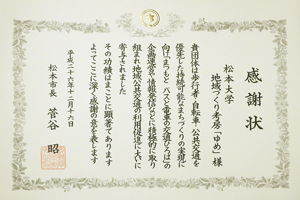 感謝状
松本大学
地域づくり考房『ゆめ』様
貴団体は歩行者・自転車、公共交通を
優先した持続可能なまちづくりの実現に
向け「まつもと バスと電車の交通ひろば」の
企画運営や情報発信などに積極的に取り
組まれ地域公共交通の利用促進に大いに
寄与されました
その功績はまことに顕著であります
よってここに深く感謝の意を表します
平成二十六年十二月十六日
松本市長 菅谷 昭